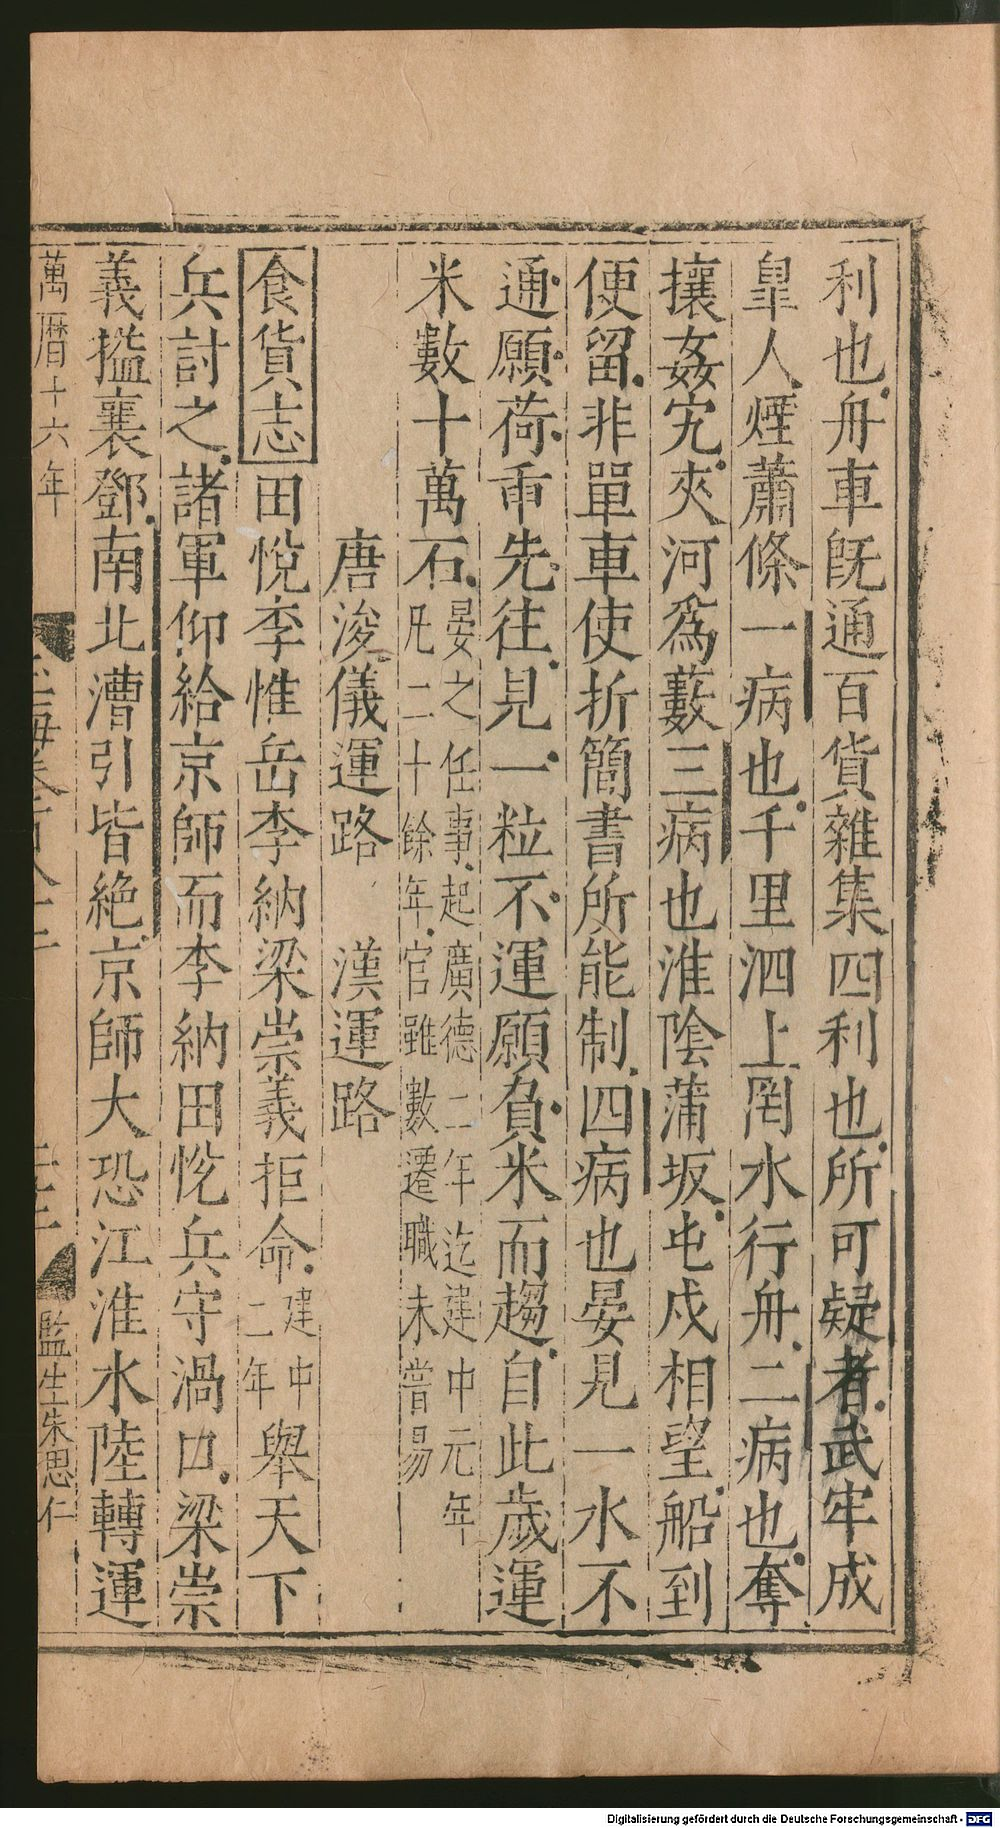 利也舟車旣通百貨雜集四利也所可疑者武牢成
臯人煙蕭條一病也千里泗上罔水行舟二病也奪
攘姦宄夾河爲藪三病也淮陰蒲坂屯戍相望船到
便留非單車使折簡書所能制四病也晏見一水不
通願荷臿先往見一粒不運願負米而趨自此歲運
米數十萬石
晏之任事起廣德二年迄建中元年
凡二十餘年官雖數遷職未嘗易
唐浚儀運路 漢運路
食貨志田悅李惟岳李納梁崇義拒命
建中
二年
舉天下
兵討之諸軍仰給京師而李納田悅兵守渦口梁崇
義搤襄鄧南北漕引皆絶京師大恐江淮水陸轉運
萬曆十六年
監生朱思仁
Digitalisierung gefördert durch die Deutsche Forschungsgemeinschaft - DFG